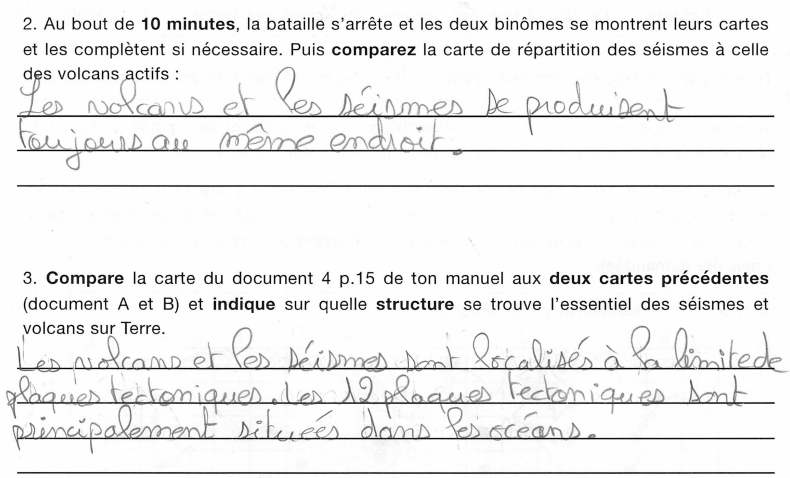 2. Au bout de 10 minutes, la bataille s'arrête et les deux binômes se montrent leurs cartes
et les complètent si nécessaire. Puis comparez la carte de répartition des séismes à celle
des volcans actifs :
Les volcans et les séismes se produisent
toujours au même endroit.
3. Compare la carte du document 4 p.15 de ton manuel aux deux cartes précédentes
(document A et B) et indique sur quelle structure se trouve l'essentiel des séismes et
volcans sur Terre.
Les volcans et les séismes sont localisés à la limite de
plaques tectoniques. Les 12 plaques tectoniques sont
principalement situées dans les océans.